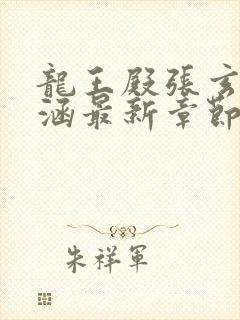 龍王殿張玄
涵最新章節
朱祥軍